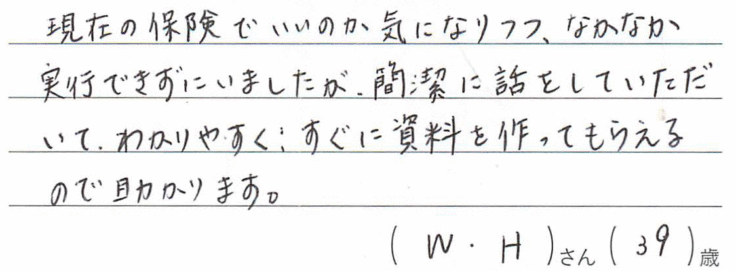 現在の保険でいいのか気になりつつ、なかなか
実行できずにいましたが、簡潔に話をしていただ
いて、わかりやすく、すぐに資料を作ってもらえる
ので助かります。
(W・H)さん(39)歳